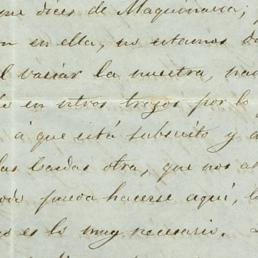 me dices de Maquinaria;
on sin ella, no estamos d
l vasiar la nuestra, pa
en otros trozos por lo
á que está subscrito y a
las Caidas otra, que nos a
odo pueda hacerse aquí, l
o es lo muy necesario.